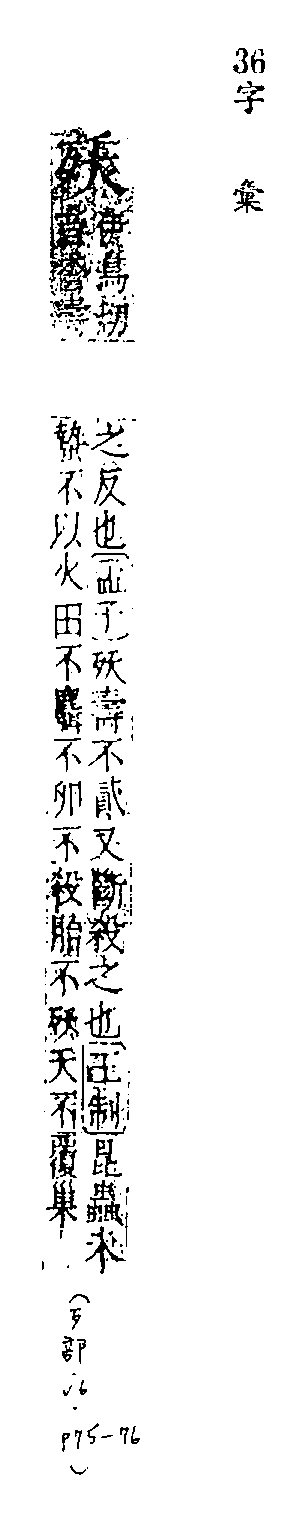 36字 彙
殀
伊鳥切
音壽
之反也〔孟子〕殀壽不貳又斷殺之也〔王制〕昆蟲未
蟄不以火田不麛不卵不殺胎不殀夭不覆巢
(歹部·16·P75-76)